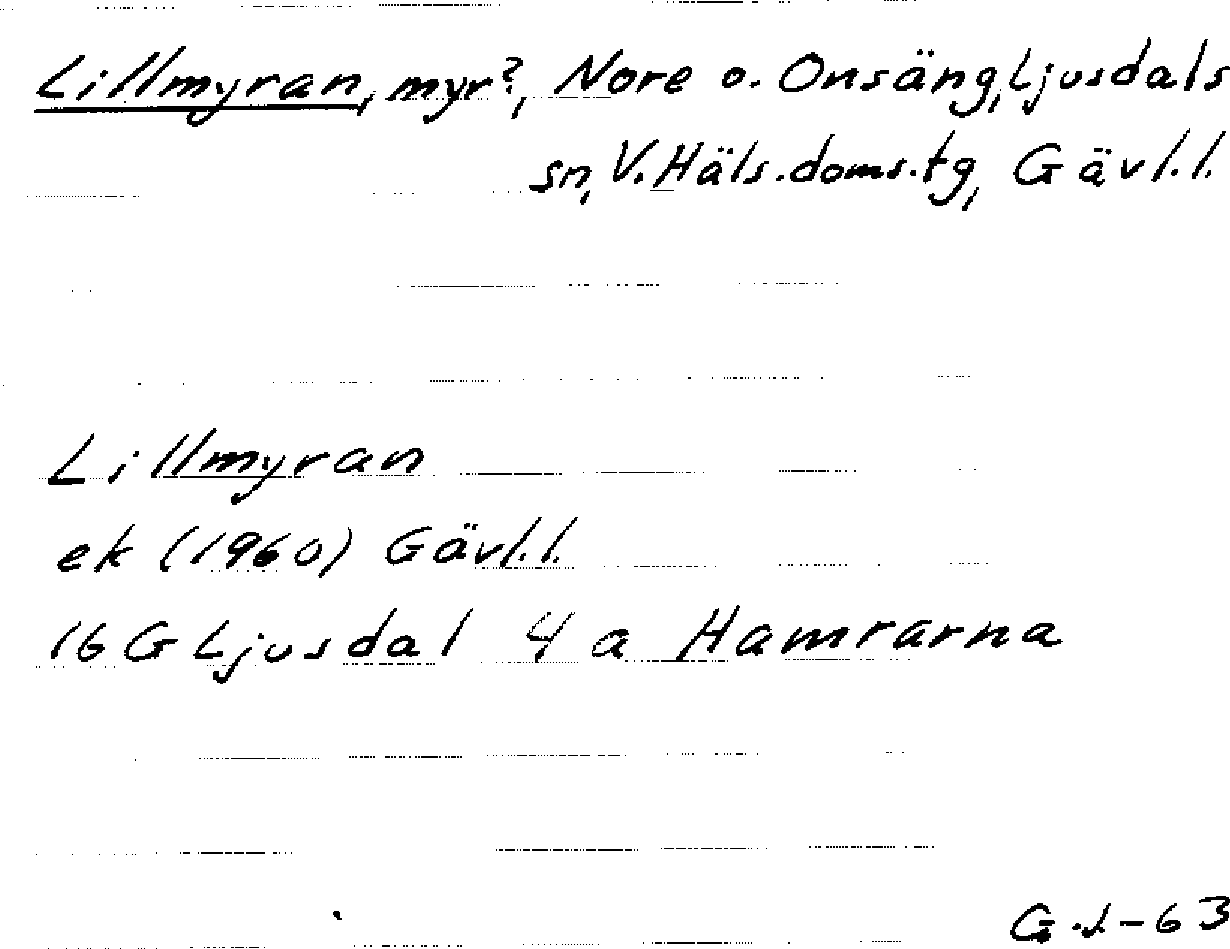 Lillmyran, myr?, Nore o. Onsäng, Ljusdals
sn, V. Häls. doms.tg, Gävl.l.
Lillmyran
ek (1960) Gävl.l.
16 G Ljusdal 4 a Hamrarna
G.L-63